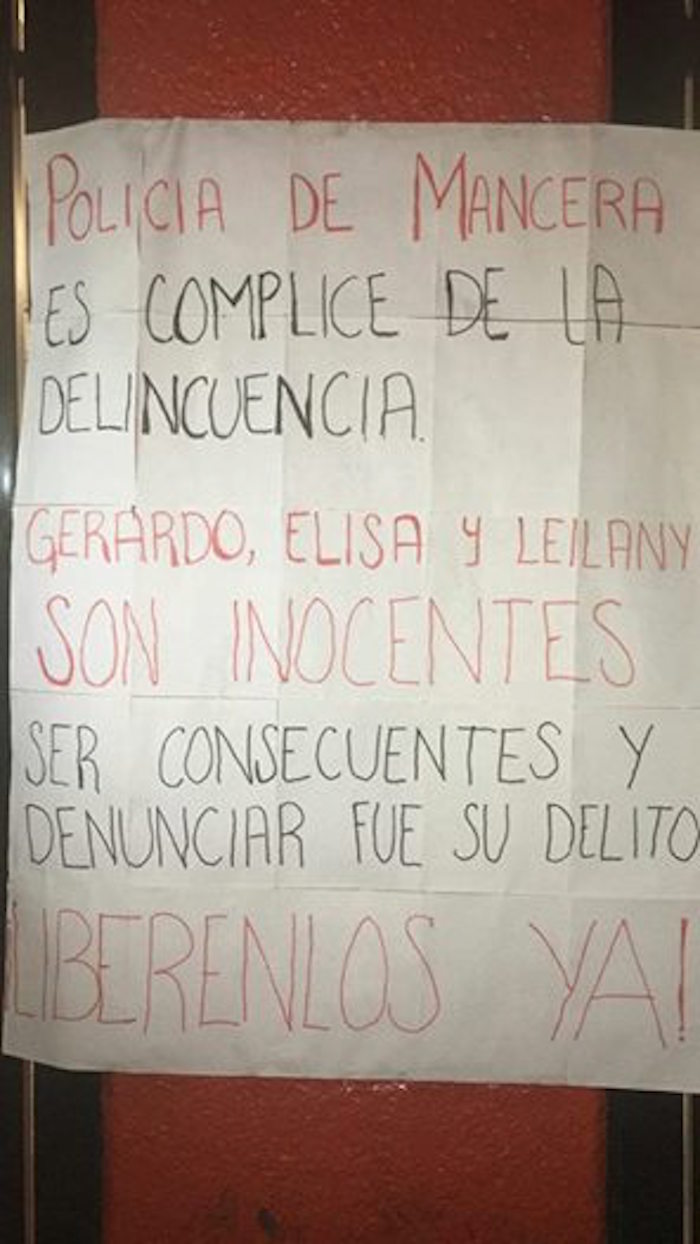 POLICIA DE MANCERA
ES COMPLICE DE LA
DELINCUENCIA.
GERARDO, ELISA Y LEILANY
SON INOCENTES
SER CONSECUENTES Y
DENUNCIAR FUE SU DELITO
¡LIBERENLOS YA!